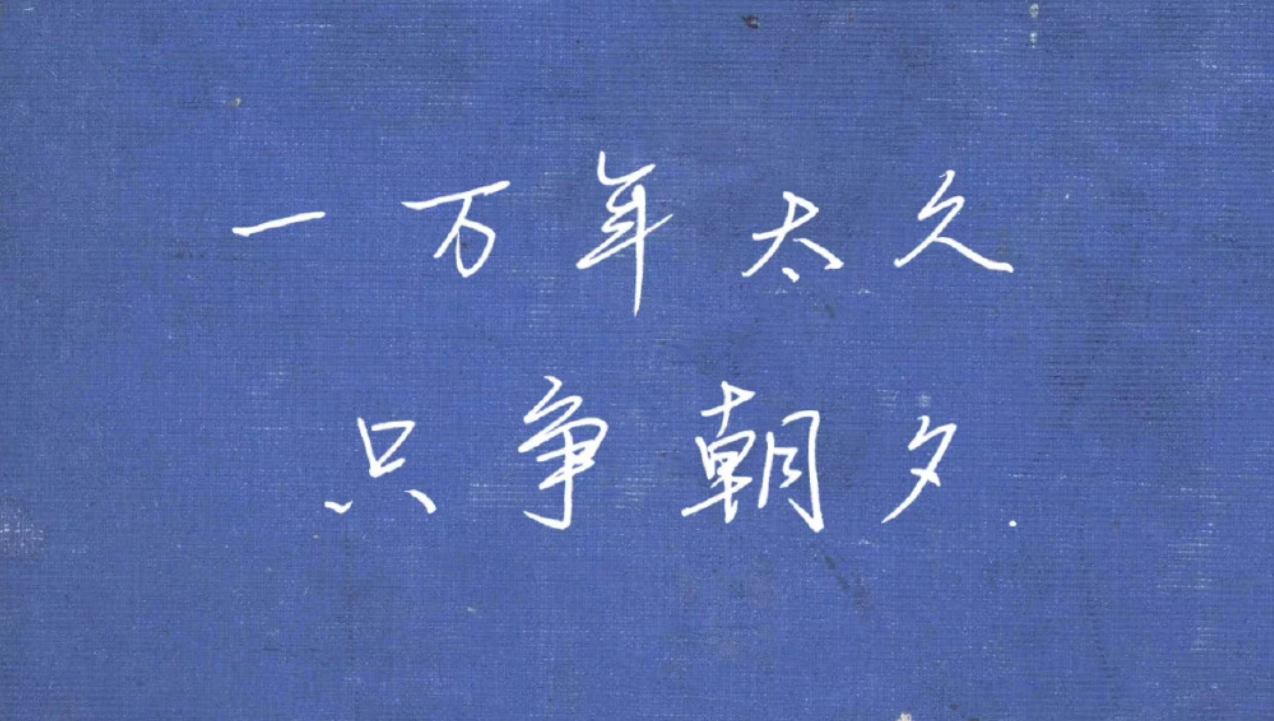 一万年太久
只争朝夕.